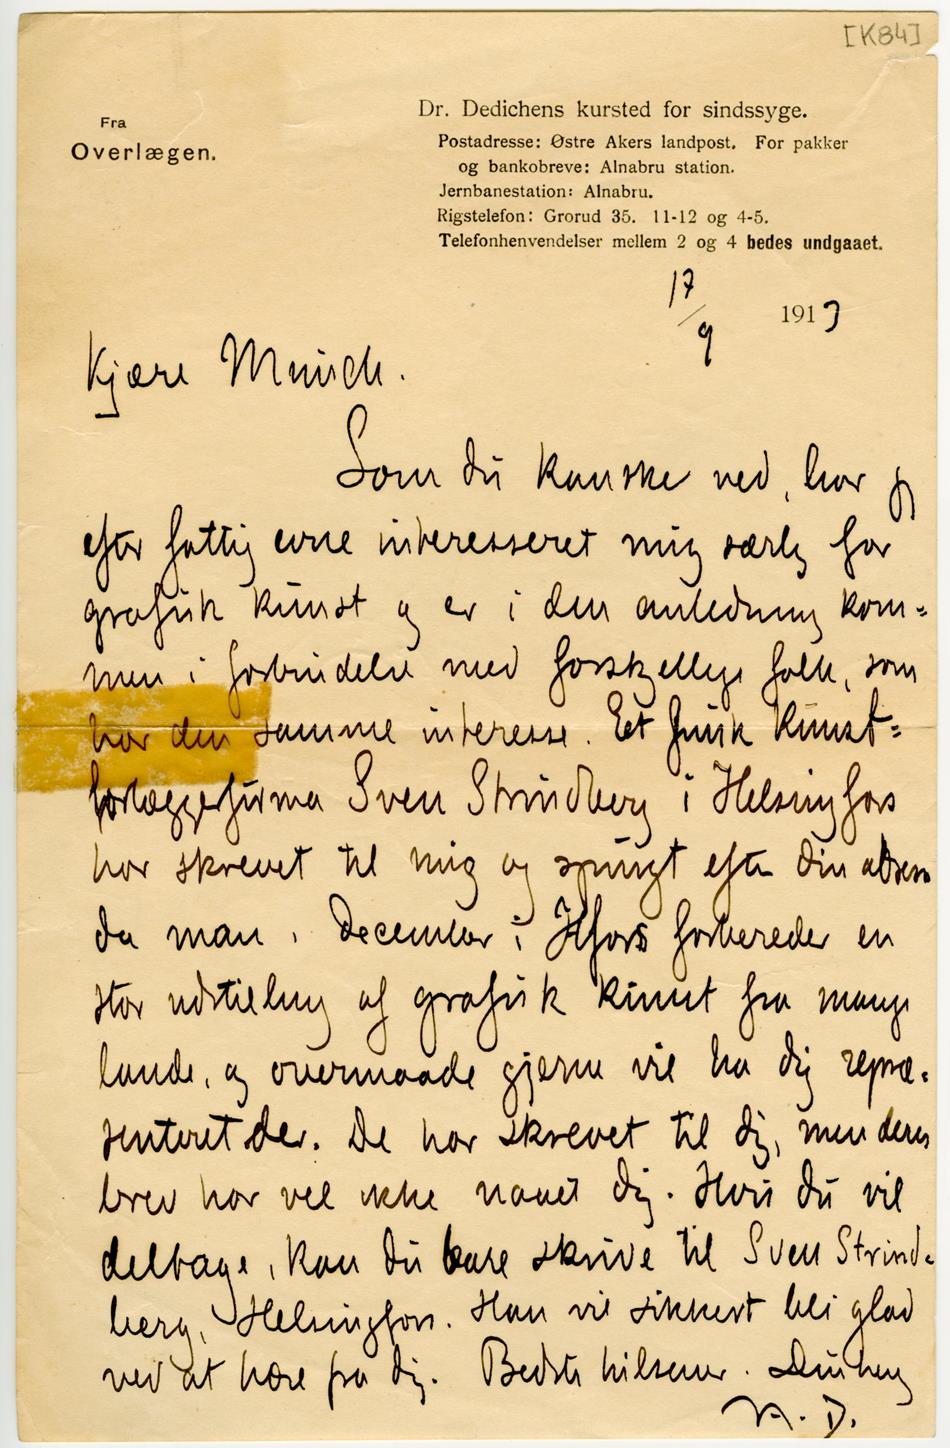 [K84]
Fra
Overlægen.
Dr. Dedichens kursted for sindssyge.
Postadresse: Østre Akers landpost. For pakker
og bankobreve: Alnabru station.
Jernbanestation: Alnabru.
Rigstelefon: Grorud 35. 11-12 og 4-5.
Telefonhenvendelser mellem 2 og 4 bedes undgaaet.
17/9 1913
Kjære Munch.
Som du kanske ved, har jeg
efter fattig evne interesseret mig særlig for
grafisk kunst og er i den anledning kom=
men i forbindelse med forskjellige folk, som
har den samme interesse. Et finsk kunst=
forlæggerfirma Sven Strindberg i Helsingfors
har skrevet til mig og spurgt efter din adresse
da man i December i Hfors forbereder en
stor udstilling af grafisk kunst fra mange
lande, og overmaade gjerne vil ha dig repræ=
senteret der. De har skrevet til dig, men deres
brev har vel ikke naaet dig. Hvis du vil
deltage, kan du bare skrive til Sven Strind=
berg, Helsingfors. Han vil sikkert bli glad
ved at høre fra dig. Bedste hilsener. Din heng
H. D.